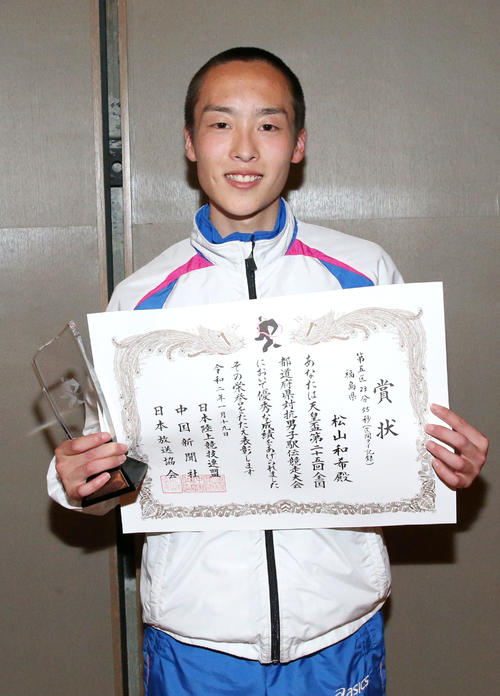 賞状
第五区 23分55秒(区間タイ記録)
福島県
松山和希殿
あなたは天皇盃第二十五回全国
都道府県対抗男子駅伝競走大会
において優秀な成績をあげられました
その栄誉をたたえ表彰します
令和二年一月十九日
日本陸上競技連盟
中国新聞社
日本放送協会
asics